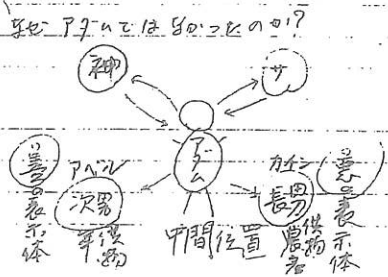 なぜ アダムではなかったのか?
神
サ
アダム
善の表示体
アベル
次男
羊 供物
中間位置
カイン
長男
農産 供物
悪の表示体